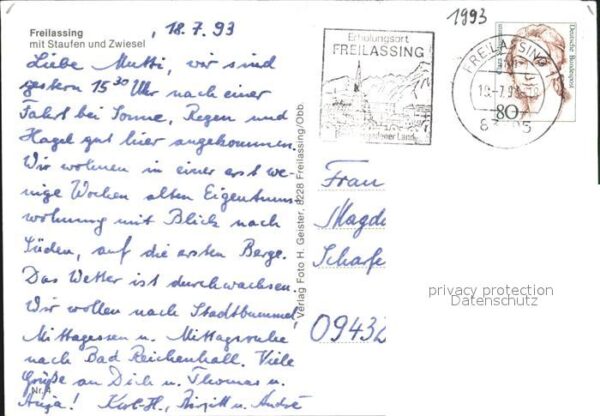 Freilassing
mit Staufen und Zwiesel
18.7.93
Liebe Mutti, wir sind
gestern 15 30 Uhr nach einer
Fahrt bei Sonne, Regen und
Hagel gut hier angekommen.
Wir wohnen in einer erst we-
nige Wochen alten Eigentums
wohnung mit Blick nach
Süden, auf die ersten Berge.
Das Wetter ist durchwachsen.
Wir wollen nach Stadtbummel,
Mittagessen u. Mittagsruhe
nach Bad Reichenhall. Viele
Grüße an Dich u. Thomas u.
Anja! Karl-H., Birgitt u. André
Nr. 4
Verlag Foto H. Geister, 8228 Freilassing/Obb.
Erholungsort
FREILASSING
Land
1993
FREILASSING
80
Deutsche Bundespost
Frau
Magda
Scharfe
09432
privacy protection
Datenschutz